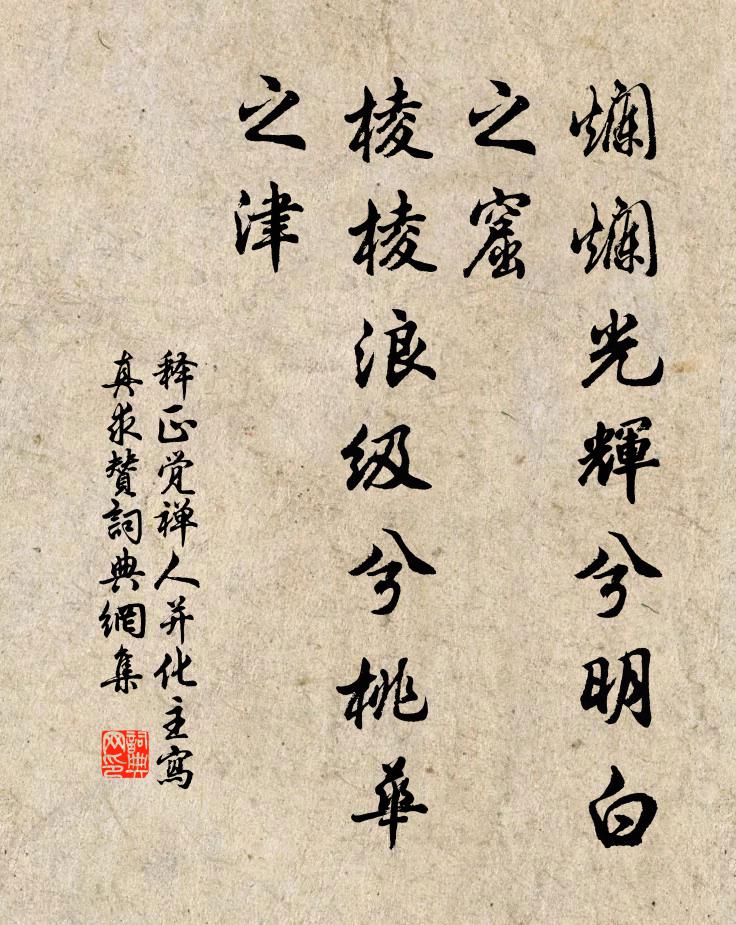 爛爛光輝兮明白
之窟
棱棱浪级兮桃華
之津
释正觉禅人并化主寫
真求贊詞典網集
詞典
网印